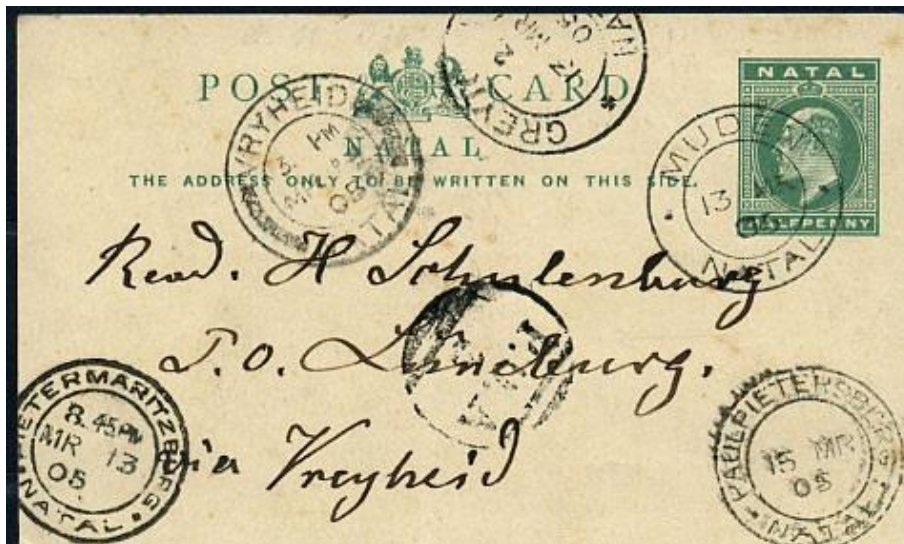 POST CARD
NATAL
THE ADDRESS ONLY TO BE WRITTEN ON THIS SIDE.
NATAL
HALFPENNY
GREYT
MR
VRYHEID
PM
05
NATAL
MUDEN
13 MR
05
NATAL
Revd. H Schulenburg
P.O. Lüneburg.
via Vreyheid
PIETERMARITZBURG
8.45PM
MR 13
05
NATAL
PAULPIETERSBURG
15 MR
05
NATAL